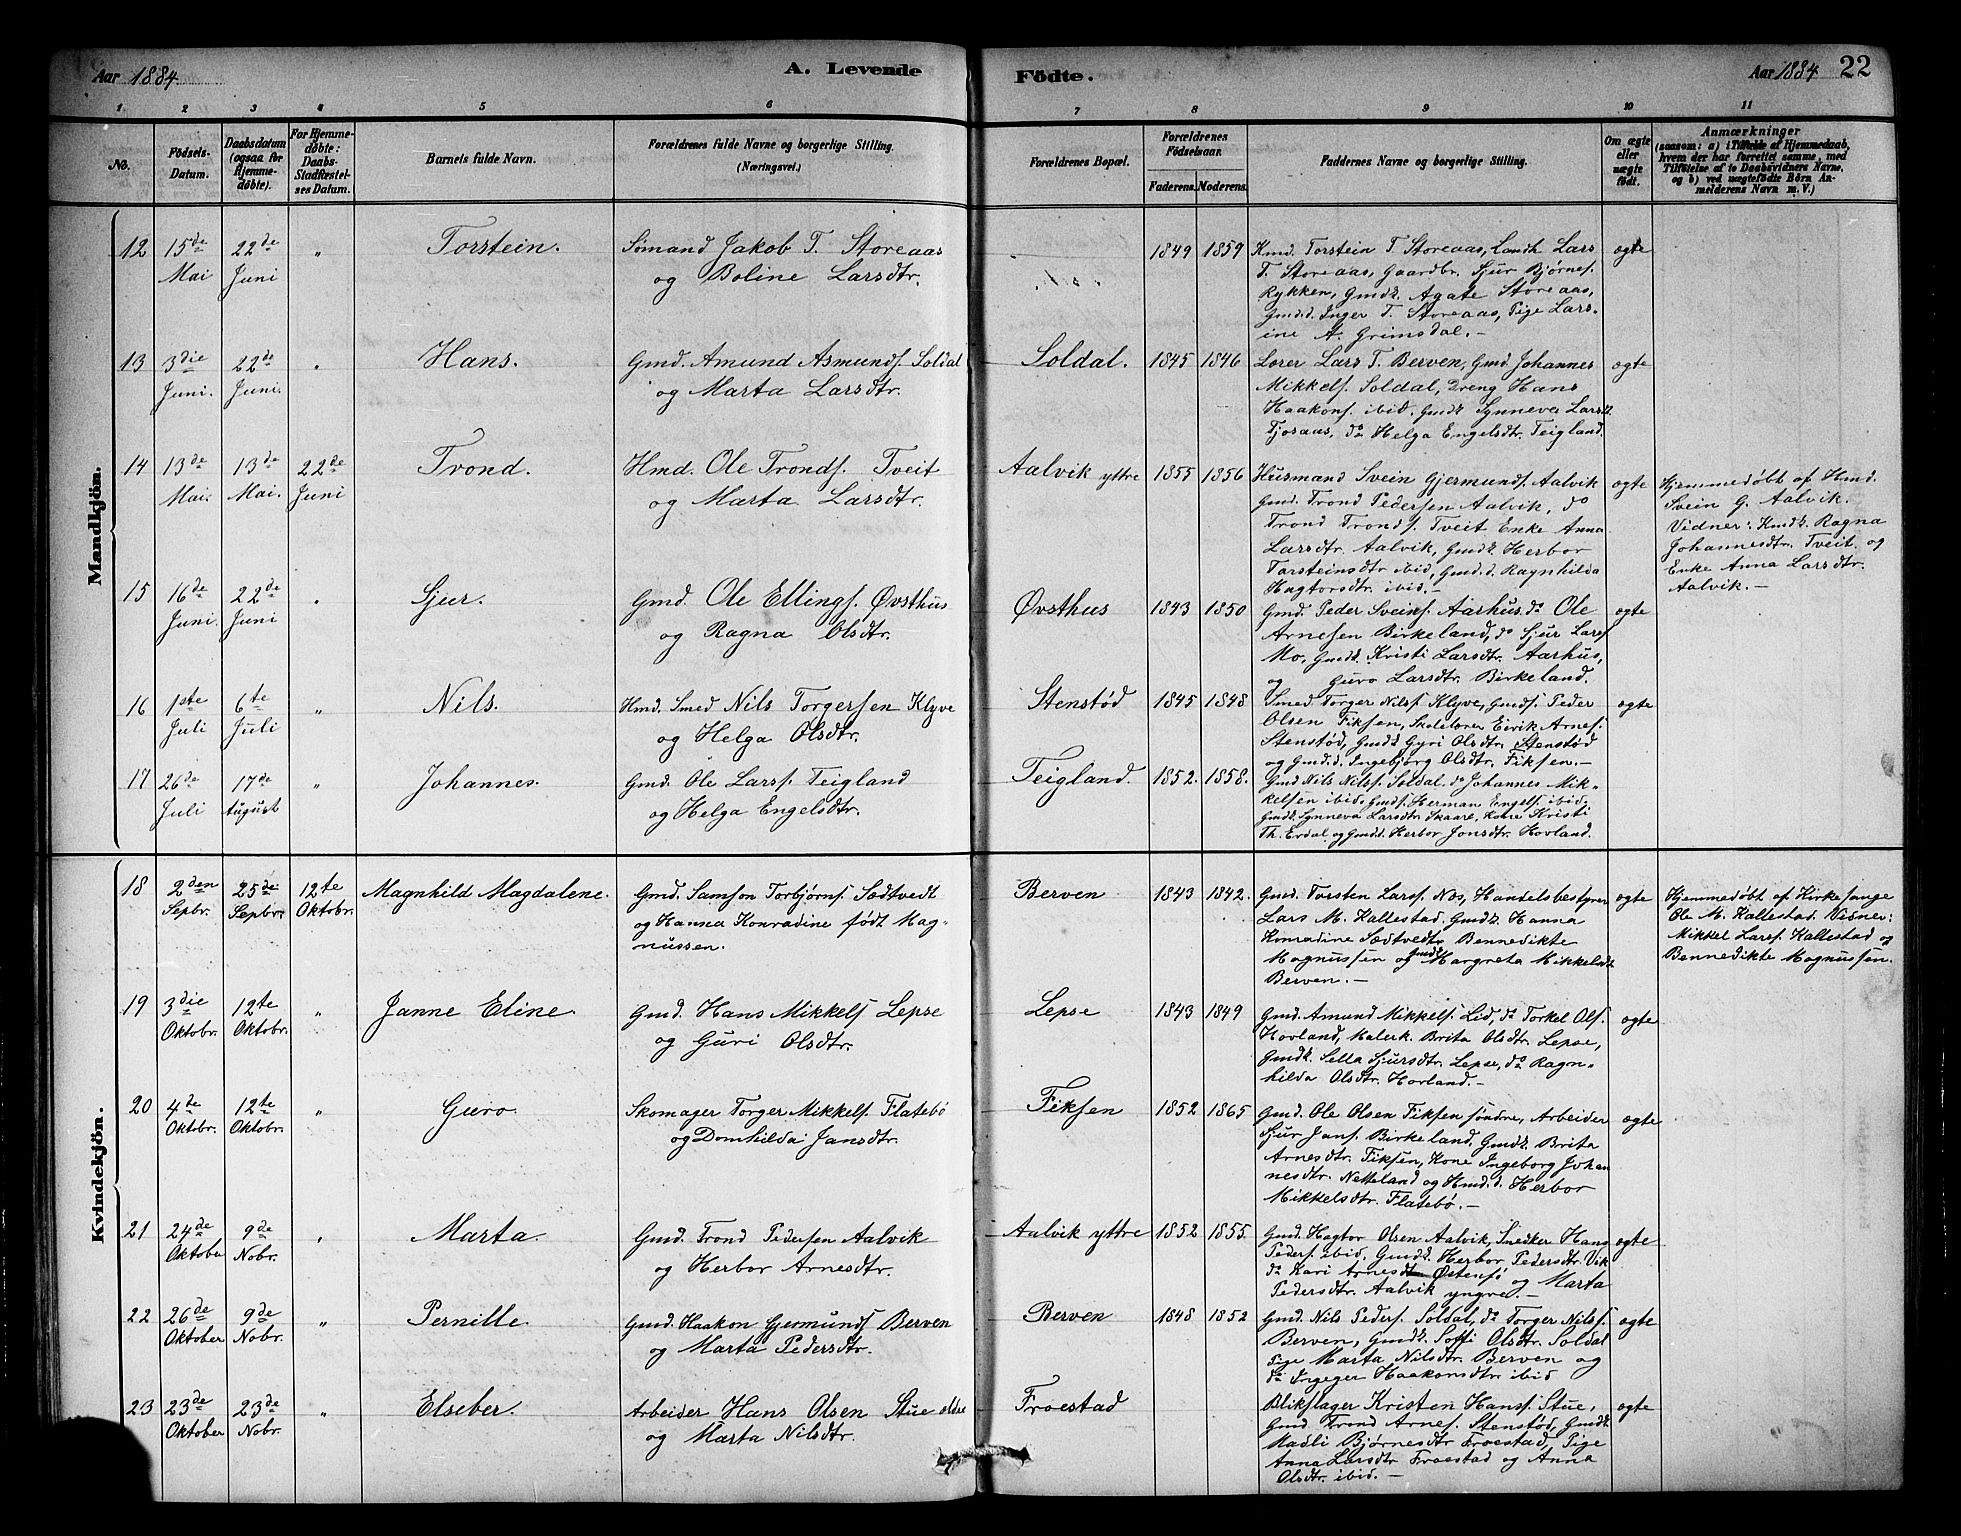 Aar 1884.
A. Levende Födte.
Aar 1884 22
1 2 3 4 5 6 7 8 9 10 11
No.
Födsels-
Datum.
Daabsdatum
(ogsaa for
Hjemme-
döbte).
For Hjemme-
döbte:
Daabs-
Stadfæstel-
ses Datum.
Barnets fulde Navn.
Forældrenes fulde Navne og borgerlige Stilling.
(Næringsvei.)
Forældrenes Bopæl.
Forældrenes
Födselsaar.
Faderens. Moderens.
Faddernes Navne og borgerlige Stilling.
Om ægte
eller
uægte
födt.
Anmærkninger
(saasom: a) i Tilfælde af Hjemmedaab,
hvem der har forrettet samme, med
Tilföielse af to Daabsvidners Navne,
og b) ved uægtefödte Börn An-
melderens Navn m. V.)
Mandkjön.
12 15de Mai 22de Juni " Torstein. Sömand Jakob T. Storeaas
og Boline Larsdtr.
1849 1859 Kmd. Torstein T. Storeaas, Landh. Lars
T. Storeaas, Gaardbr. Sjur Bjørnes.
Rykken, Gmdk. Agate Storeaas,
Gmd.d. Inger T. Storeaas, Pige Lars-
ine A. Grimsdal.-
ægte
13 3die Juni. 22de Juni. " Hans. Gmd. Amund Asmunds. Soldal
og Marta Larsdtr.
Soldal. 1845 1846 Lærer Lars T. Berven, Gmd Johannes
Mikkels. Soldal, Dreng Hans
Haakons. ibid. Gmdk Synneva Larsd.
Tjosaas, do Helga Engelsdtr. Teigland.
ægte
14 13de Mai. 13de Mai. 22de Juni Trond. Hmd. Ole Tronds. Tveit
og Marta Larsdtr.
Aalvik yttre 1855 1856 Husmand Svein Gjermunds. Aalvik
Gmd. Trond Pedersen Aalvik, do
Trond Tronds. Tveit Enke Anna
Larsdtr. Aalvik, Gmdk. Herbor
Torsteinsdtr ibid, Gmd.d. Ragnhilda
Hagtorsdtr. ibid.-
ægte
Hjemmedøbt af Hmd.
Svein G. Aalvik.
Vidner: Kmdk. Ragna
Johannesdtr. Tveit og
Enke Anna Larsdtr.
Aalvik.-
15 16de Juni 22de Juni " Sjur. Gmd. Ole Ellings. Øvsthus
og Ragna Olsdtr.
Øvsthus 1843 1850 Gmd. Peder Sveins. Aarhus, do Ole
Arnesen Birkeland, do Sjur Lars.
Mo, Gmdk. Kristi Larsdtr. Aarhus,
og Guro Larsdtr. Birkeland.
ægte
16 1ste Juli 6te Juli " Nils. Hmd. Smed Nils Torgersen Klyve
og Helga Olsdtr.
Stenstød 1845 1848 Smed Torger Nils. Klyve, Gmds. Peder
Olsen Fiksen, Skolelærer Eirik Arnes.
Stenstød, Gmdk Gyri Olsdtr. Stenstød
og Gmd.d. Ingebjørg Olsdtr. Fiksen.-
ægte
17 26de Juli 17de August " Johannes. Gmd. Ole Lars. Teigland
og Helga Engelsdtr.
Teigland. 1852. 1858. Gmd Nils Nils. Soldal, do Johannes Mik-
kelsen ibid, Gmds. Herman Engels. ibid,
Gmdk Synneva Larsdtr. Skaare, Kone Kristi
Th. Erdal og Gmdd. Herbor Jonsdtr. Hovland.
Kvindekjön.
18 2den Sepbr. 25de Sepbr. 12te Oktobr. Magnhild Magdalene. Gmd. Samson Torbjørns. Sædtvedt
og Hanna Konradine født Mag-
nussen.
Berven 1843 1842. Gmd. Torsten Lars. Nos, Handelsbestyrer
Lars M. Kallestad. Gmdk. Hanna
Konradine Sædtvedt Bennedikte
Magnussen og Gmdk Margreta Mikkelsdt
Berven.-
ægte
Hjemmedøbt af Kirkesange
Ole M. Kallestad. Vidner:
Mikkel Lars. Kallestad og
Bennedikte Magnussen.
19 3die Oktobr. 12te Oktobr. " Janne Eline. Gmd. Hans Mikkels Lepse
og Guri Olsdtr.
Lepse 1843 1849 Gmd. Amund Mikkels. Lid, do Torkel Ols.
Hovland, Malerk. Brita Olsdtr. Lepse,
Gmdk. Sella Sjursdtr. Lepse, do Ragn-
hilda Olsdtr. Hovland.-
ægte
20 4de Oktobr. 12te Oktobr. " Guro. Skomager Torger Mikkels. Flatebö
og Domhilda Jansdtr.
Fiksen 1852 1865 Gmd. Ole Olsen Fiksen søndre, Arbeider
Sjur Jans. Birkeland, Gmdk. Brita
Arnesdtr. Fiksen, Kone Ingeborg Johan
nesdtr. Netteland og Hmd.d. Herbor
Mikkelsdtr. Flatebö.-
ægte
21 24de Oktober 9de Nobr. " Marta. Gmd. Trond Pedersen Aalvik
og Herbor Arnesdtr.
Aalvik yttre 1852 1855. Gmd. Hagtor Olsen Aalvik, Snedker Hans
Peders. ibid, Gmdk. Herbor Pedersdtr. Vik
do Kari Arnesdtr Østensö og Marta
Pedersdtr. Aalvik yngre.-
ægte
22 26de Oktober 9de Nobr. " Pernille. Gmd. Haakon Gjermunds Berven
og Marta Pedersdtr.
Berven 1848 1852 Gmd. Nils Peders. Soldal, do Torger Nils.
Berven, Gmdk. Soffi Olsdtr. Soldal
Pige Marta Nilsdtr. Berven og
do Ingeger Haakonsdtr. ibid
ægte
23 23de Oktober 23de Nobr. " Elseber. Arbeider Hans Olsen Stue ældre
og Marta Nilsdtr.
Froestad Blikslager Kristen Hans. Stue,
Gmd. Trond Arnes. Stenstød, Gmdk.
Madli Bjørnesdtr Froestad, Pige
Anna Larsdtr Froestad og Anna
Olsdtr. ibid.-
ægte